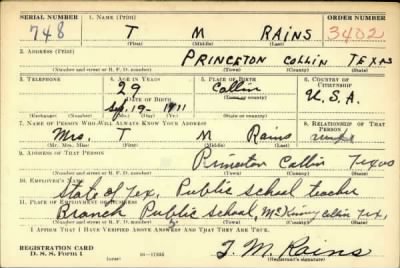 SERIAL NUMBER 1. NAME (Print) ORDER NUMBER
748 T M RAINS 3402
(First) (Middle) (Last)
2. ADDRESS (Print)
PRINCETON COLLIN TEXAS
(Number and street or R. F. D. number) (Town) (County) (State)
3. TELEPHONE 4. AGE IN YEARS 5. PLACE OF BIRTH 6. COUNTRY OF CITIZENSHIP
29 Collin
DATE OF BIRTH (Town or county) U.S.A.
Sep. 19 - 1911 Texas
(Exchange) (Number) (Mo.) (Day) (Yr.) (State or country)
7. NAME OF PERSON WHO WILL ALWAYS KNOW YOUR ADDRESS 8. RELATIONSHIP OF THAT PERSON
Mrs. T M Rains
(Mr., Mrs., Miss) (First) (Middle) (Last)
9. ADDRESS OF THAT PERSON
Princeton Collin Texas
(Number and street or R. F. D. number) (Town) (County) (State)
10. EMPLOYER'S NAME
State of Tex, Public school teacher
11. PLACE OF EMPLOYMENT OR BUSINESS
Branch Public school, McKinney Collin Tex,
(Number and street or R. F. D. number) (Town) (County) (State)
I AFFIRM THAT I HAVE VERIFIED ABOVE ANSWERS AND THAT THEY ARE TRUE.
REGISTRATION CARD
D. S. S. Form 1 T. M. Rains
(Registrant's signature)